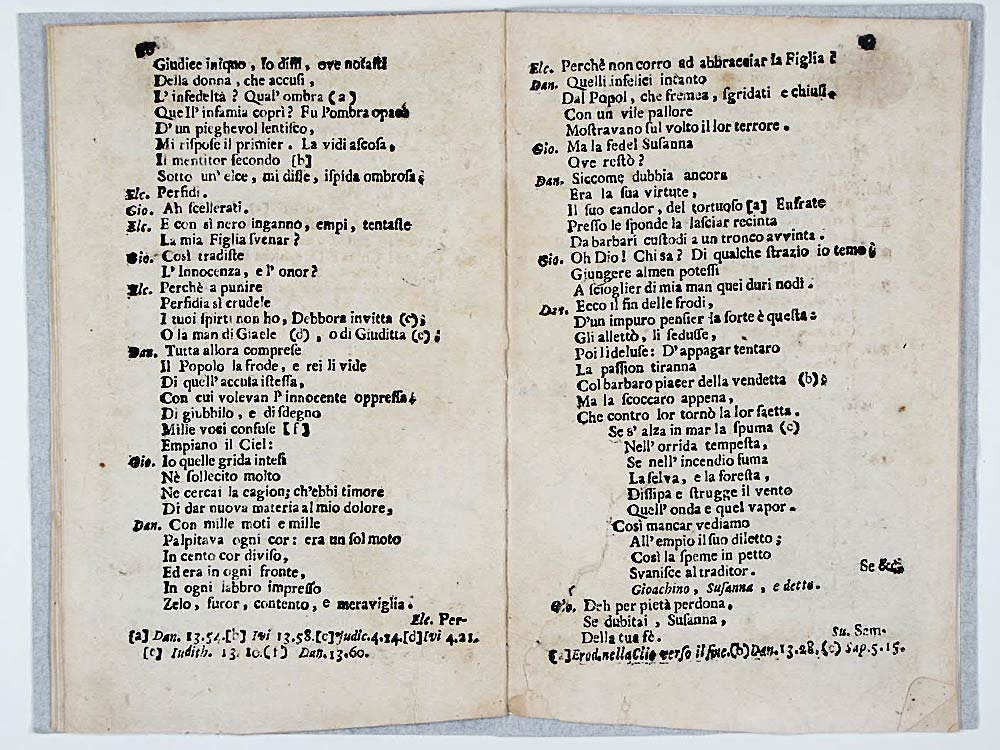 Giudice iniquo, Io dissi, ove notasti
Della donna, che accusi,
L'infedeltà? Qual' ombra (a)
Quell' infamia coprì? Fu l'ombra opaca
D'un pieghevol lentisco,
Mi rispose il primier. La vidi ascosa,
Il mentitor secondo [b]
Sotto un' elce, mi disse, ispida ombrosa;
Elc. Perfidi.
Gio. Ah scellerati.
Elc. E con sì nero inganno, empi, tentaste
La mia Figlia svenar?
Gio. Così tradiste
L'Innocenza, e l' onor?
Elc. Perchè a punire
Perfidia sì crudele
I tuoi spirti non ho, Debbora invitta (c);
O la man di Giaele (d), o di Giuditta (e);
Dan. Tutta allora comprese
Il Popolo la frode, e rei li vide
Di quell' accusa istessa,
Con cui volevan l' innocente oppressa;
Di giubbilo, e di sdegno
Mille voci confuse [f]
Empiano il Ciel:
Gio. Io quelle grida intesi
Nè sollecito molto
Ne cercai la cagion; ch'ebbi timore
Di dar nuova materia al mio dolore,
Dan. Con mille moti e mille
Palpitava ogni cor: era un sol moto
In cento cor diviso,
Ed era in ogni fronte,
In ogni labbro impresso
Zelo, furor, contento, e meraviglia.
Elc. Per-
[a] Dan. 13.54.[b] Ivi 13.58.[c] Judic.4.14.[d] Ivi 4.21.
[e] Iudith. 13. 10.(f) Dan.13.60.
Elc. Perchè non corro ad abbracciar la Figlia?
Dan. Quelli infelici intanto
Dal Popol, che fremea, sgridati e chiusi,
Con un vile pallore
Mostravano sul volto il lor terrore.
Gio. Ma la fedel Susanna
Ove restò?
Dan. Siccome dubbia ancora
Era la sua virtute,
Il suo candor, del tortuoso [a] Eufrate
Presso le sponde la lasciar recinta
Da barbari custodi a un tronco avvinta.
Gio. Oh Dio! Chi sa? Di qualche strazio io temo;
Giungere almen potessi
A scioglier di mia man quei duri nodi.
Dan. Ecco il fin delle frodi,
D'un impuro pensier la sorte è questa:
Gli allettò, li sedusse,
Poi li deluse: D'appagar tentaro
La passion tiranna
Col barbaro piacer della vendetta (b);
Ma la scoccaro appena,
Che contro lor tornò la lor saetta.
Se s' alza in mar la spuma (c)
Nell' orrida tempesta,
Se nell' incendio fuma
La selva, e la foresta,
Dissipa e strugge il vento
Quell' onda e quel vapor.
Così mancar vediamo
All' empio il suo diletto;
Così la speme in petto
Svanisce al traditor.
Se &c.
Gioachino, Susanna, e dette.
Gio. Deh per pietà perdona,
Se dubitai, Susanna,
Della tua fè.
Su. Sem.
(a) Erod. nella Clio verso il fine.(b) Dan.13.28.(c) Sap.5.15.